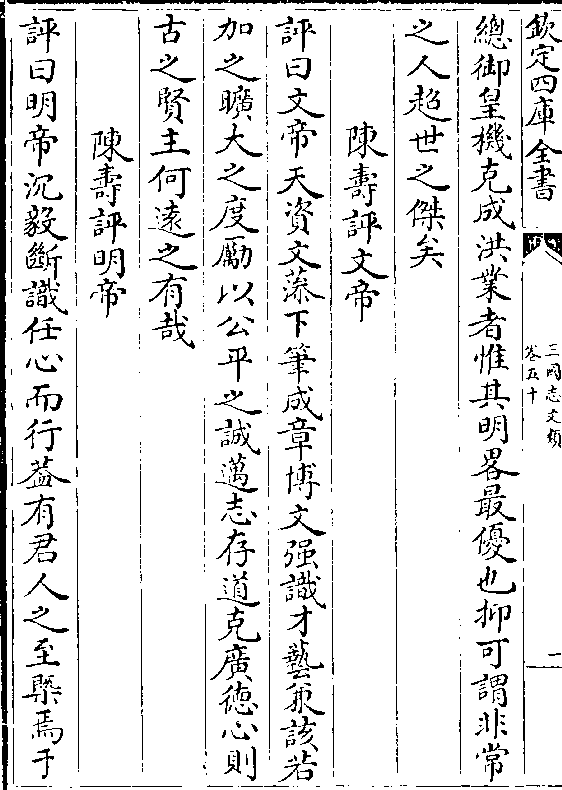 欽定四庫全書
三國志文類
卷五十
二
總御皇機克成洪業者惟其明畧最優也抑可謂非常
之人超世之傑矣
陳壽評文帝
評曰文帝天資文藻下筆成章博文强識才藝兼該若
加之曠大之度勵以公平之誠邁志存道克廣德心則
古之賢主何遠之有哉
陳壽評明帝
評曰明帝沉毅斷識任心而行葢有君人之至槩焉于